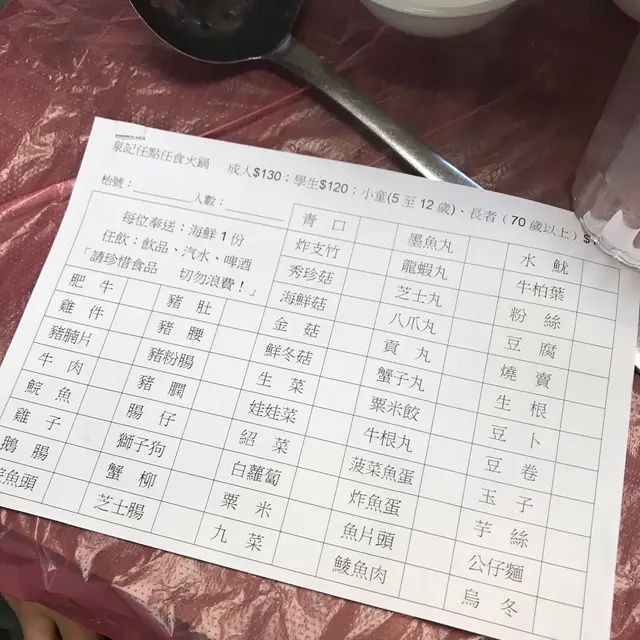 泉記任點任食火鍋 成人$130；學生$120；小童(5 至 12 歲)、長者（70 歲以上）$
枱號：________人數：________
每位奉送：海鮮 1 份
任飲：飲品、汽水、啤酒
「請珍惜食品 切勿浪費！」
肥牛
雞件
豬腩片
牛肉
鯇魚
雞子
鵝腸
鯇魚頭
豬肚
豬腰
豬粉腸
豬膶
腸仔
獅子狗
蟹柳
芝士腸
青口
炸支竹
秀珍菇
海鮮菇
金菇
鮮冬菇
生菜
娃娃菜
紹菜
白蘿蔔
粟米
九菜
墨魚丸
龍蝦丸
芝士丸
八爪丸
貢丸
蟹子丸
粟米餃
牛根丸
菠菜魚蛋
炸魚蛋
魚片頭
鯪魚肉
水魷
牛柏葉
粉絲
豆腐
燒賣
生根
豆卜
豆卷
玉子
芋絲
公仔麵
烏冬